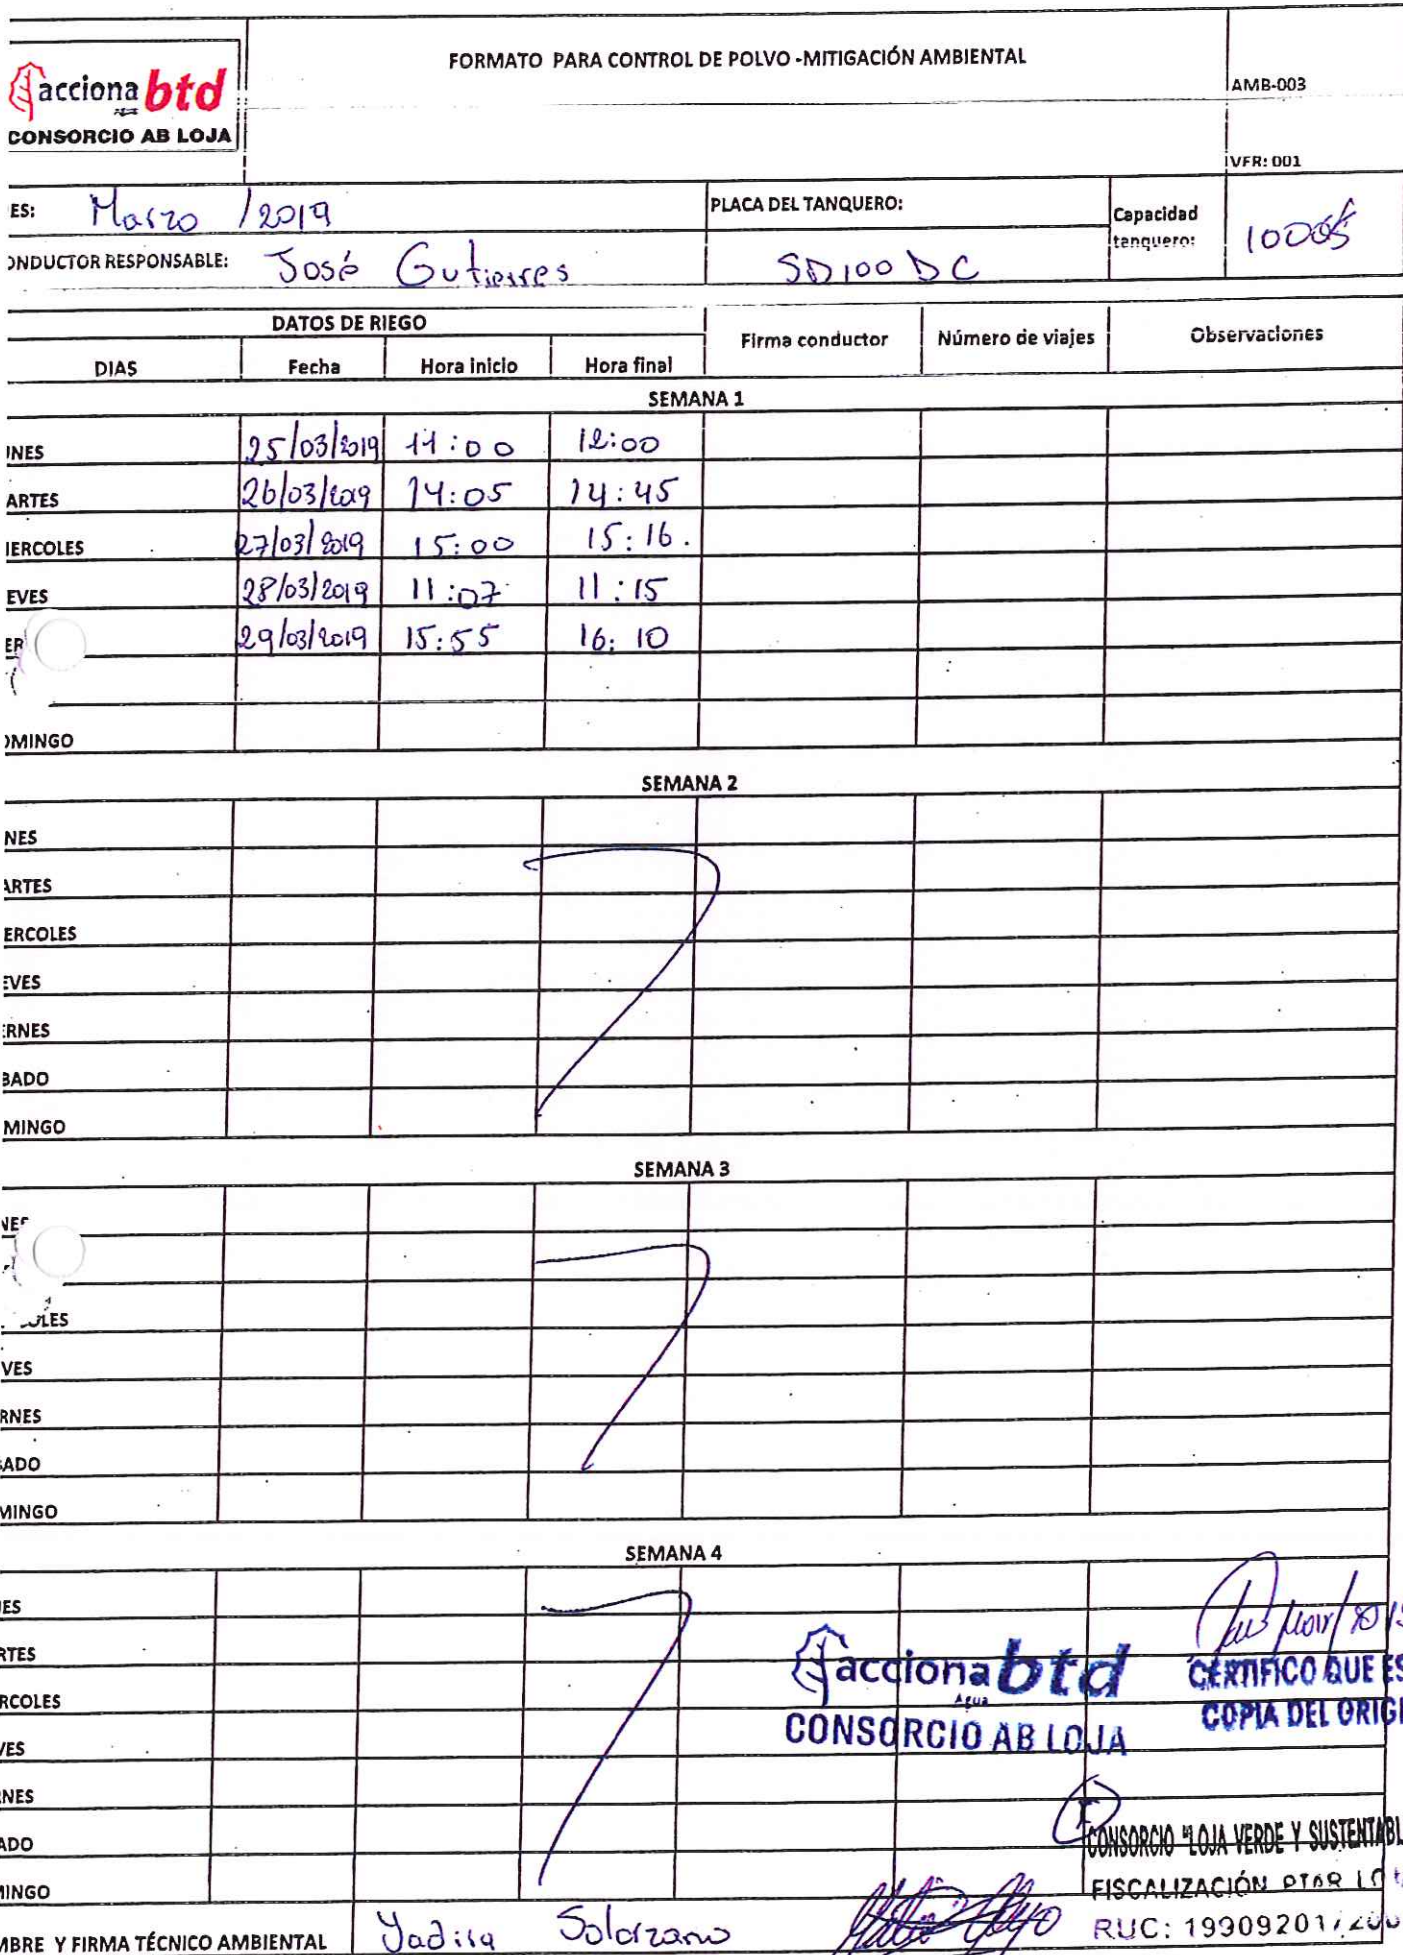 acciona btd
CONSORCIO AB LOJA
FORMATO PARA CONTROL DE POLVO -MITIGACIÓN AMBIENTAL
AMB-003
VER: 001
ES: Marzo /2019
PLACA DEL TANQUERO:
Capacidad
tanquero:
ONDUCTOR RESPONSABLE: José Gutierres
SD100 DC
DATOS DE RIEGO
Firma conductor Número de viajes Observaciones
DIAS Fecha Hora inicio Hora final
SEMANA 1
UNES 25/03/2019 11:00 12:00
ARTES 26/03/2019 14:05 14:45
IERCOLES 27/03/2019 15:00 15:16.
EVES 28/03/2019 11:07 11:15
ER 29/03/2019 15:55 16:10
OMINGO
SEMANA 2
NES
ARTES
ERCOLES
EVES
ERNES
BADO
MINGO
SEMANA 3
NES
OLES
VES
RNES
BADO
MINGO
SEMANA 4
ES
RTES
RCOLES
VES
NES
ADO
MINGO
acciona btd
Agua
CONSORCIO AB LOJA
CERTIFICO QUE ES
COPIA DEL ORIGI
CONSORCIO "LOJA VERDE Y SUSTENTABL
FISCALIZACIÓN PTAR LO
RUC: 199092017200
MBRE Y FIRMA TÉCNICO AMBIENTAL Yadira Solorzano